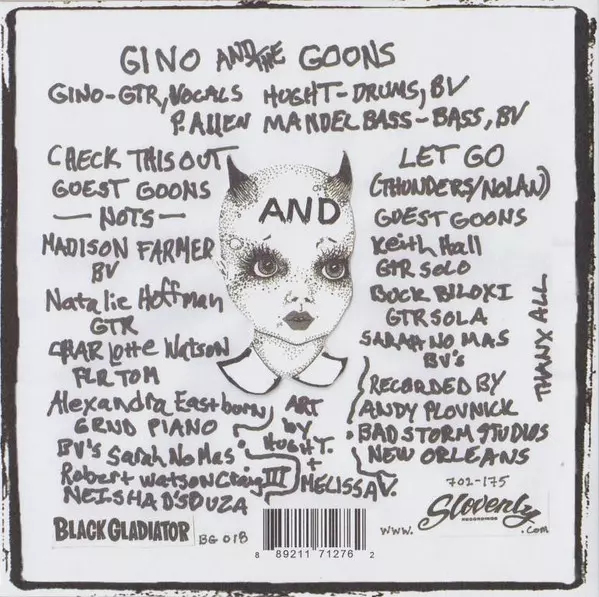 GINO AND THE GOONS
GINO-GTR, VOCALS HUGHT-DRUMS, BV
P. ALLEN MANDEL BASS-BASS, BV
CHECK THIS OUT
GUEST GOONS
— NOTS —
MADISON FARMER
BV
Natalie Hoffman
GTR
CHARlotte Watson
FLR TOM
Alexandra Eastborn
GRND PIANO
BV's Sarah No Mas
Robert Watson Craig III
NEISHA D'SOUZA
AND
ART
by
HUGH T.
+
MELISSA V.
LET GO
(THUNDERS/NOLAN)
GUEST GOONS
Keith Hall
GTR SOLO
BUCK BILOXI
GTR SOLA
SARAH NO MAS
BV's
RECORDED BY
ANDY PLOVNICK
BAD STORM STUDIOS
NEW ORLEANS
THANX ALL
702-175
BLACK GLADIATOR BG 018
8 89211 71276 2
www. Slovenly .com
RECORDINGS